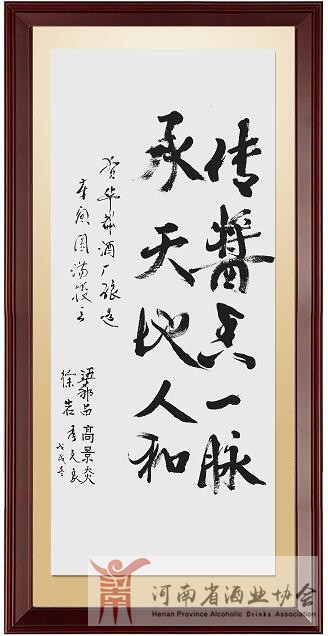 传醬香一脉
承天地人和
贺华都酒厂酿造
车间圆满竣工
梁邦昌 高景炎
徐岩 季克良
戊戌冬
河南省酒业协会
Henan Province Alcoholic Drinks Association